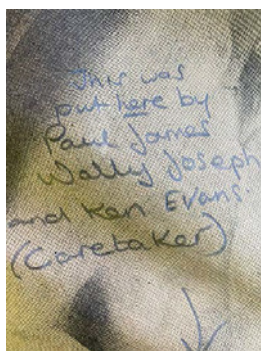 This was
put here by
Paul James
Wally Joseph
and Ken Evans.
(Caretaker)